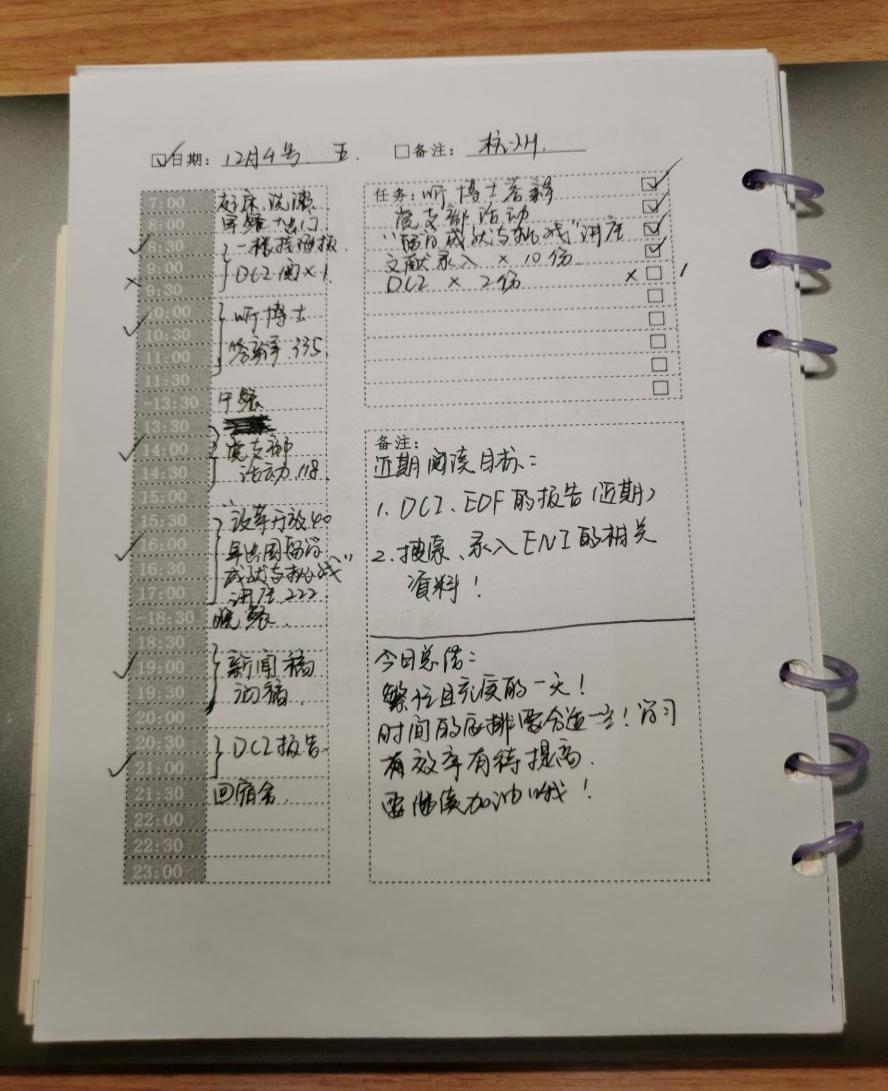 日期: 12月4号 五.
备注: 杭州.
7:00 起床、洗漱
8:00 早餐+出门
8:30 一楼挂海报
9:00 DCI 阅×1.
9:30
10:00 听博士
10:30 答辩 335.
11:00
11:30
-13:30 午餐
13:30
14:00 党支部
14:30 活动 118.
15:00
15:30 "改革开放40
16:00 年出国留学
16:30 成就与挑战"
17:00 讲座 222
-18:30 晚餐.
18:30
19:00 新闻稿
19:30 初稿.
20:00
20:30 DCI 报告
21:00
21:30 回宿舍.
22:00
22:30
23:00
任务: 听博士答辩
党支部活动
"留学成就与挑战"讲座
文献录入 × 10份
DCI × 2份 ×
备注:
近期阅读目标:
1. DCI、EDF的报告(近期)
2. 搜索、录入ENI的相关
资料!
今日总结:
繁忙且充实的一天!
时间的安排要合适一些! 学习
有效率有待提高.
要继续加油哦!